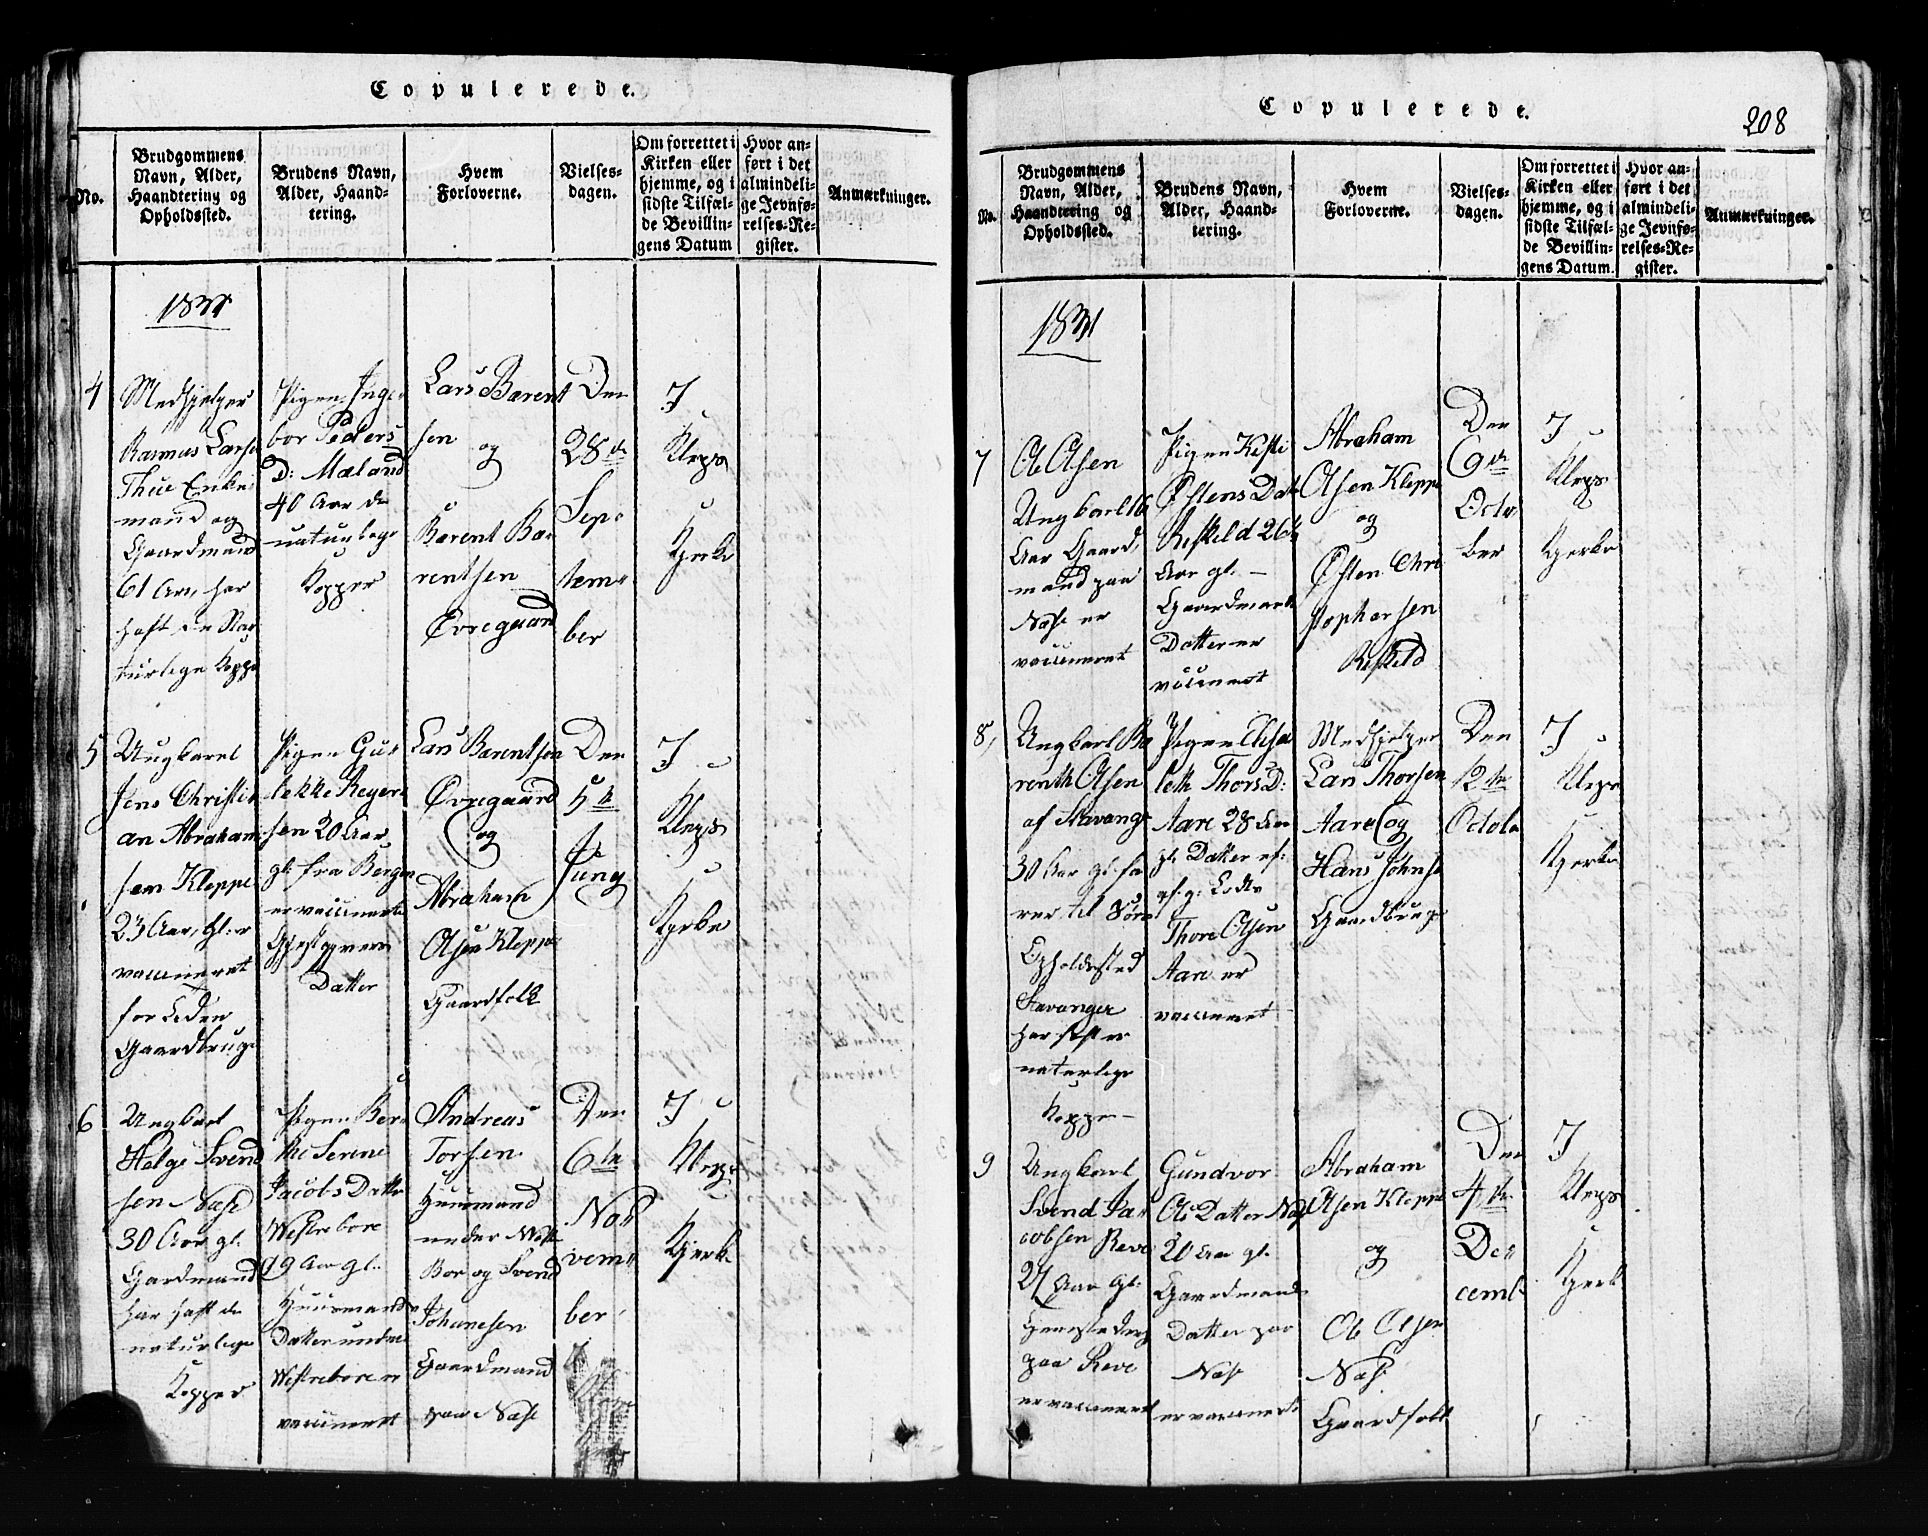 Copulerede.
No.
Brudgommens
Navn, Alder,
Haandtering og
Opholdssted.
Brudens Navn,
Alder, Haand-
tering.
Hvem
Forloverne.
Vielses-
dagen.
Om forrettet i
Kirken eller
hjemme, og i
sidste Tilfæl-
de Bevillin-
gens Datum
Hvor an-
ført i det
almindeli-
ge Jevnfø-
relses-Re-
gister.
Anmærkninger.
1831
4
Medhjelper
Rasmus Larse
Thue Enke
mand og
Gaardmand
61 Aar, har
haft de Na
turlige Koppe
Pigen Inge
bor Peders
D: Mæland
40 Aar de
naturlige
Kopper
Lars Barent
sen
og
Barent Ba
rentsen
Øvregaard
Den
28de
Sep
tem
ber
I
Kleps
Kjerke
5
Ungkarel
Jens Christi
an Abraham
sen Kleppe
23 Aar, gl: er
vaccineret
for Eden
Gaardbruge
Pigen Gu
lekke Reyer
sen 20 Aar
gl: fra Bergen
er vaccineret
Datter
Lars Barentsen
Øvregaard
og
Abraham
Olsen Kleppe
Gaardfolk
Den
5te
Juny
I
Kleps
Kjerke
6
Ungkarl
Helge Svend
sen Næse
30 Aar gl.
Gardmand
har haft de
naturlige
Kopper
Pigen Ber
the Serine
Jacobs Datter
Westrebore
19 Aar gl.
Huusmands
Datter under
Westrebore er
vaccineret
Andreas
Torsen
Huusmand
under Westre
Bor og Svend
Johanesen
Gaardmand
paa Næse
Den
6te
No
vem
ber
I
Kleps
Kjerke
Copulerede.
208
No.
Brudgommens
Navn, Alder,
Haandtering og
Opholdssted.
Brudens Navn,
Alder, Haand-
tering.
Hvem
Forloverne.
Vielses-
dagen.
Om forrettet i
Kirken eller
hjemme, og i
sidste Tilfæl-
de Bevillin-
gens Datum.
Hvor an-
ført i det
almindeli-
ge Jevnfø-
relses-Re-
gister.
Anmærkninger.
1831
7
Ole Olsen
Ungkarl
Aar Gaard
mand paa
Næse er
vaccineret
Pigen
Østens Dat
Reskeld 26
Aar gl. –
Gaardmands
Datter er
vaccineret
Abraham
Olsen Kleppe
og
Østen Chri
stophersen
Reskeld
Den
9de
Octo
ber
I
Kleps
Kjerke
8,
Ungkarl Ba
renth Olsen
af Stavange
30 Aar gl. fa
rer til Søes
Opholdssted
Stavanger
har haft
naturlige
Kopper –
Pigen Elisa
beth Thors D:
Aare 28 Aar
gl. Datter af:
Thore Olsen
Aare er
vaccineret
Medhjelper
Lars Thorsen
Aare og
Hans Johns
Gaardbruge
Den
12te
Octob
I
Kleps
Kjerke
9
Ungkarl
Svend Ja
cobsen Reve
27 Aar gl:
paa Reve
er vaccineret
Gundvor
Ole Datter Næse
20 Aar gl.
Gaardmands
Datter paa
Næse
er vaccineret
Abraham
Olsen Kleppe
og
Ole Olsen
Næse
Gaardfolk
Den
4de
De
cemb
I
Kleps
Kjerk